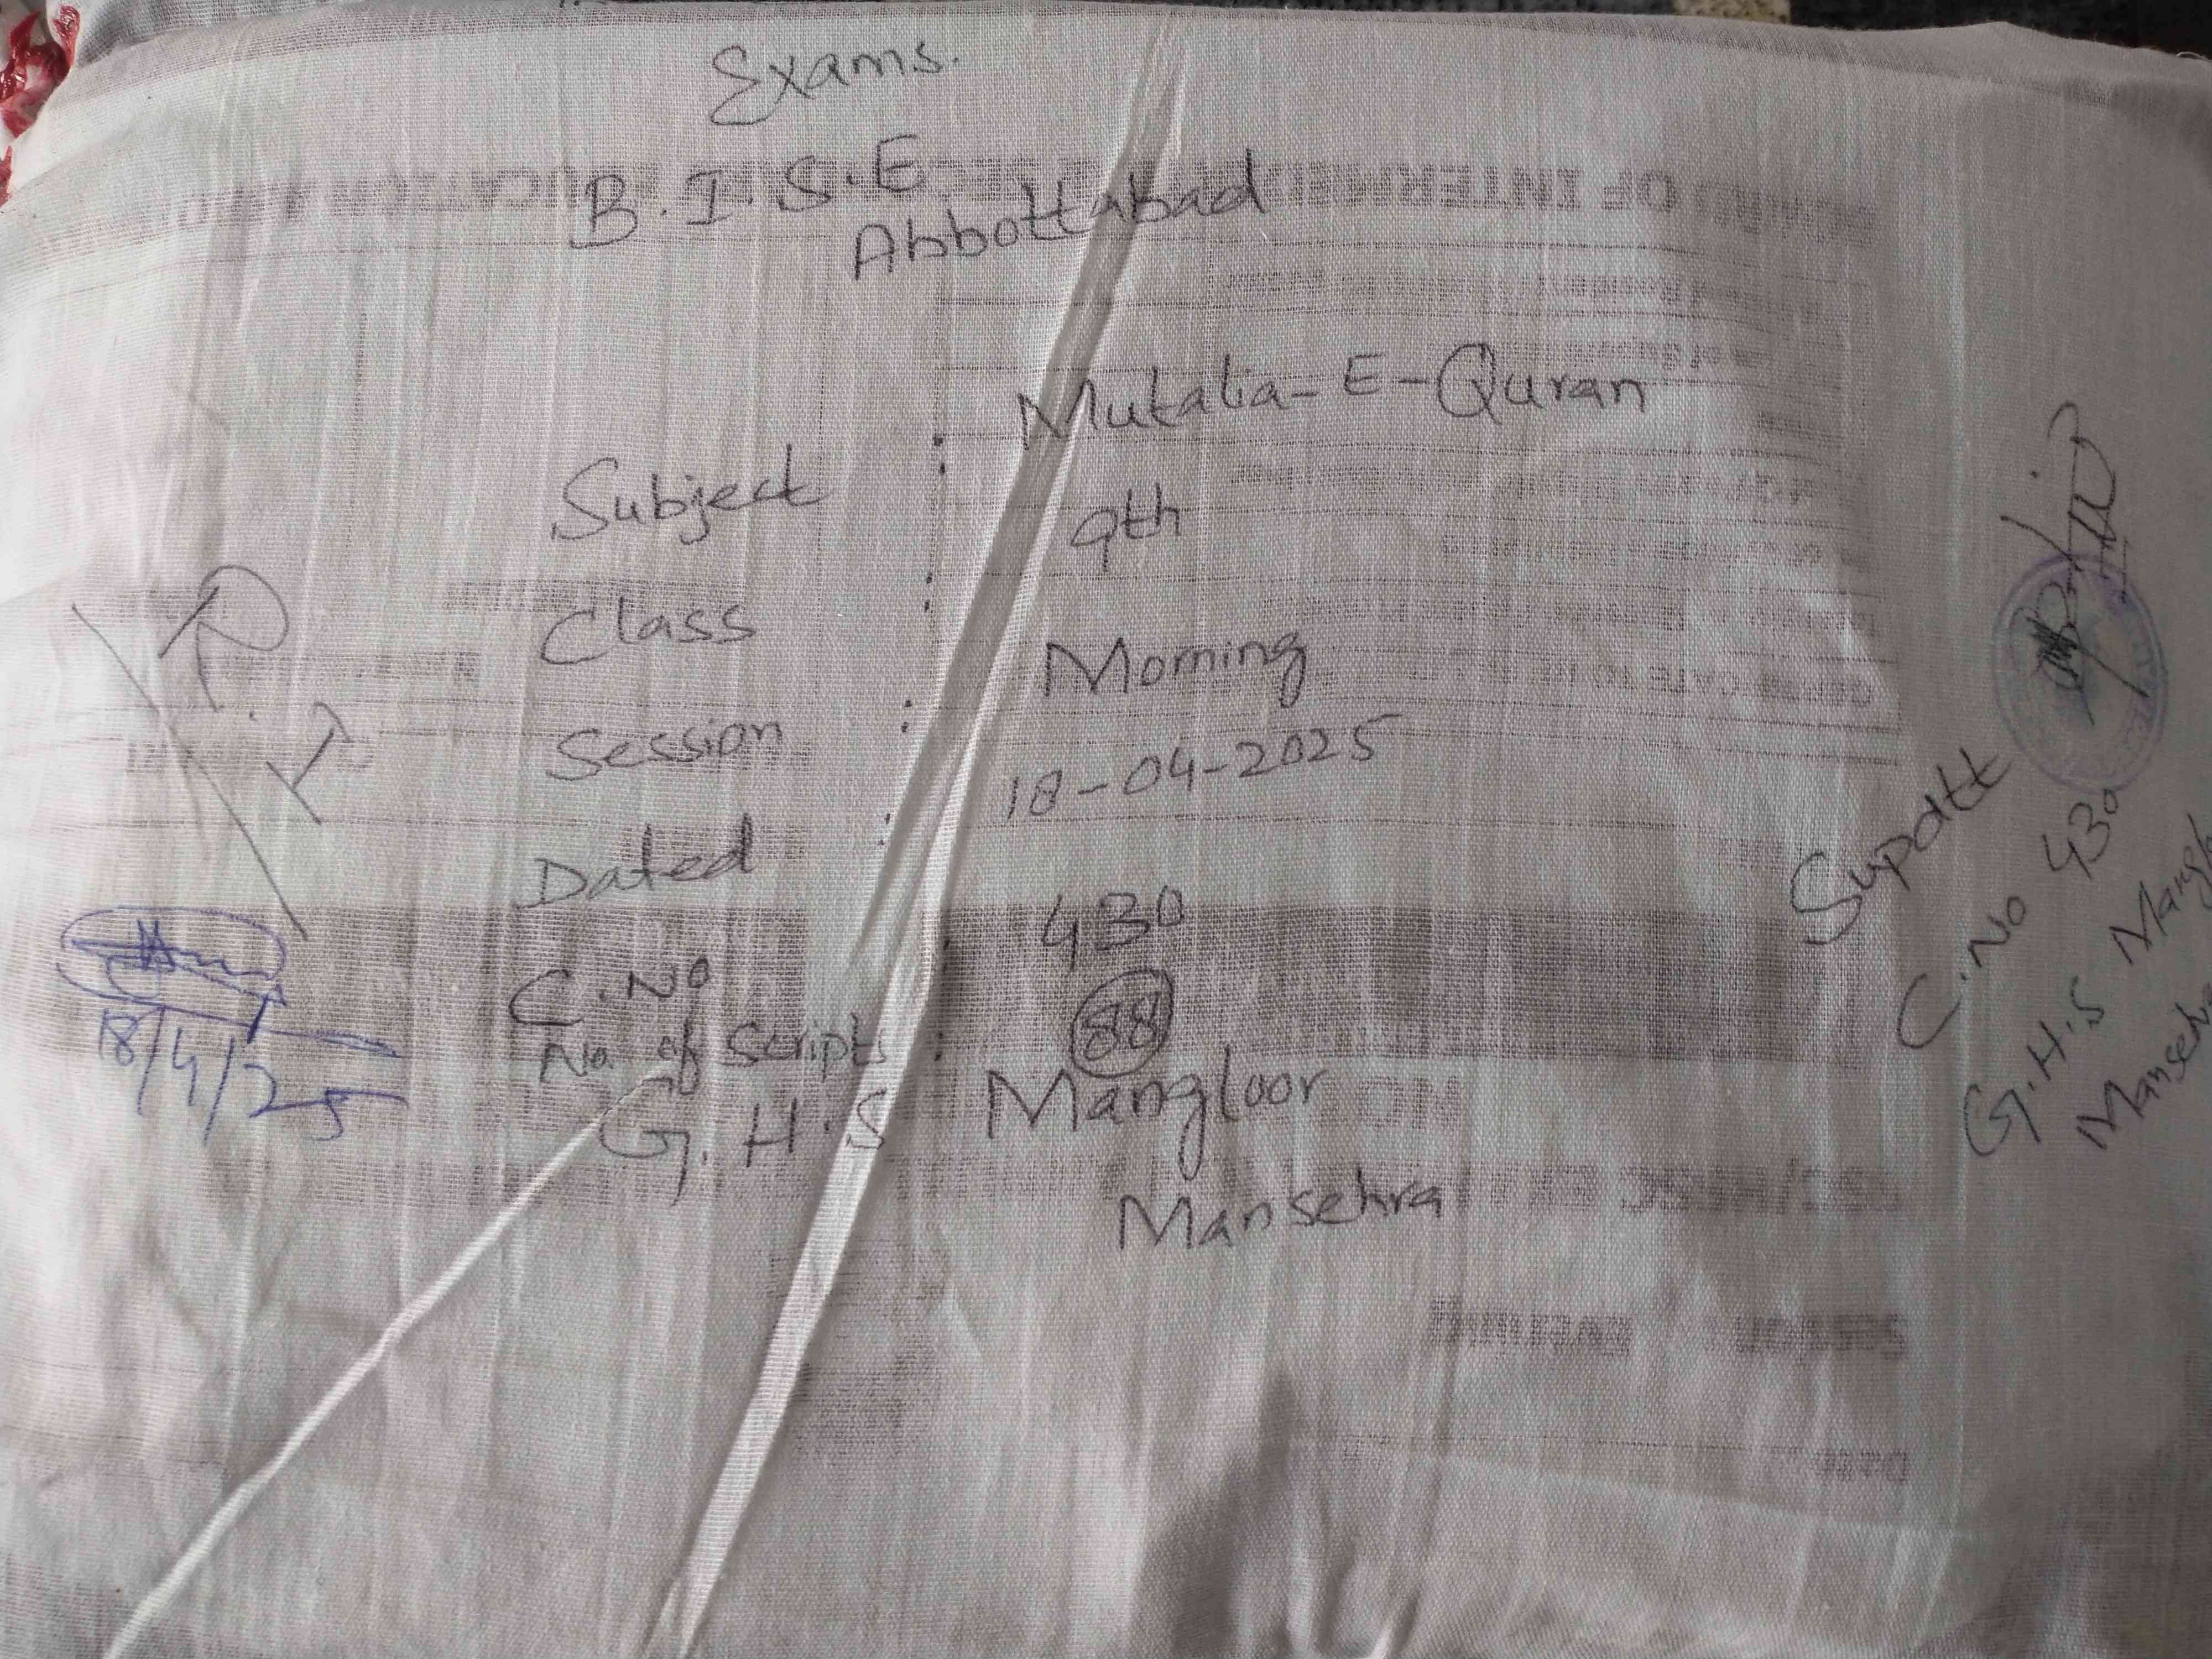 Exams.
B.I.S.E
Abbottabad
Subject : Mutalia-E-Quran
Class : 9th
Session : Morning
Dated : 18-04-2025
C.No : 430
No. of Scripts : 88
G.H.S Mangloor
Mansehra
R.I
18/4/25
Supdtt
C.No 430
G.H.S